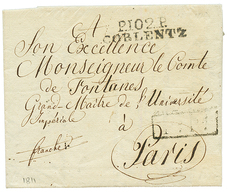 A
P.102.P.
COBLENTZ
Son Excellence
Monseigneur le Comte
de Fontanes
Grand-Maître de l'Université
Impériale
à
Paris
franche
1811